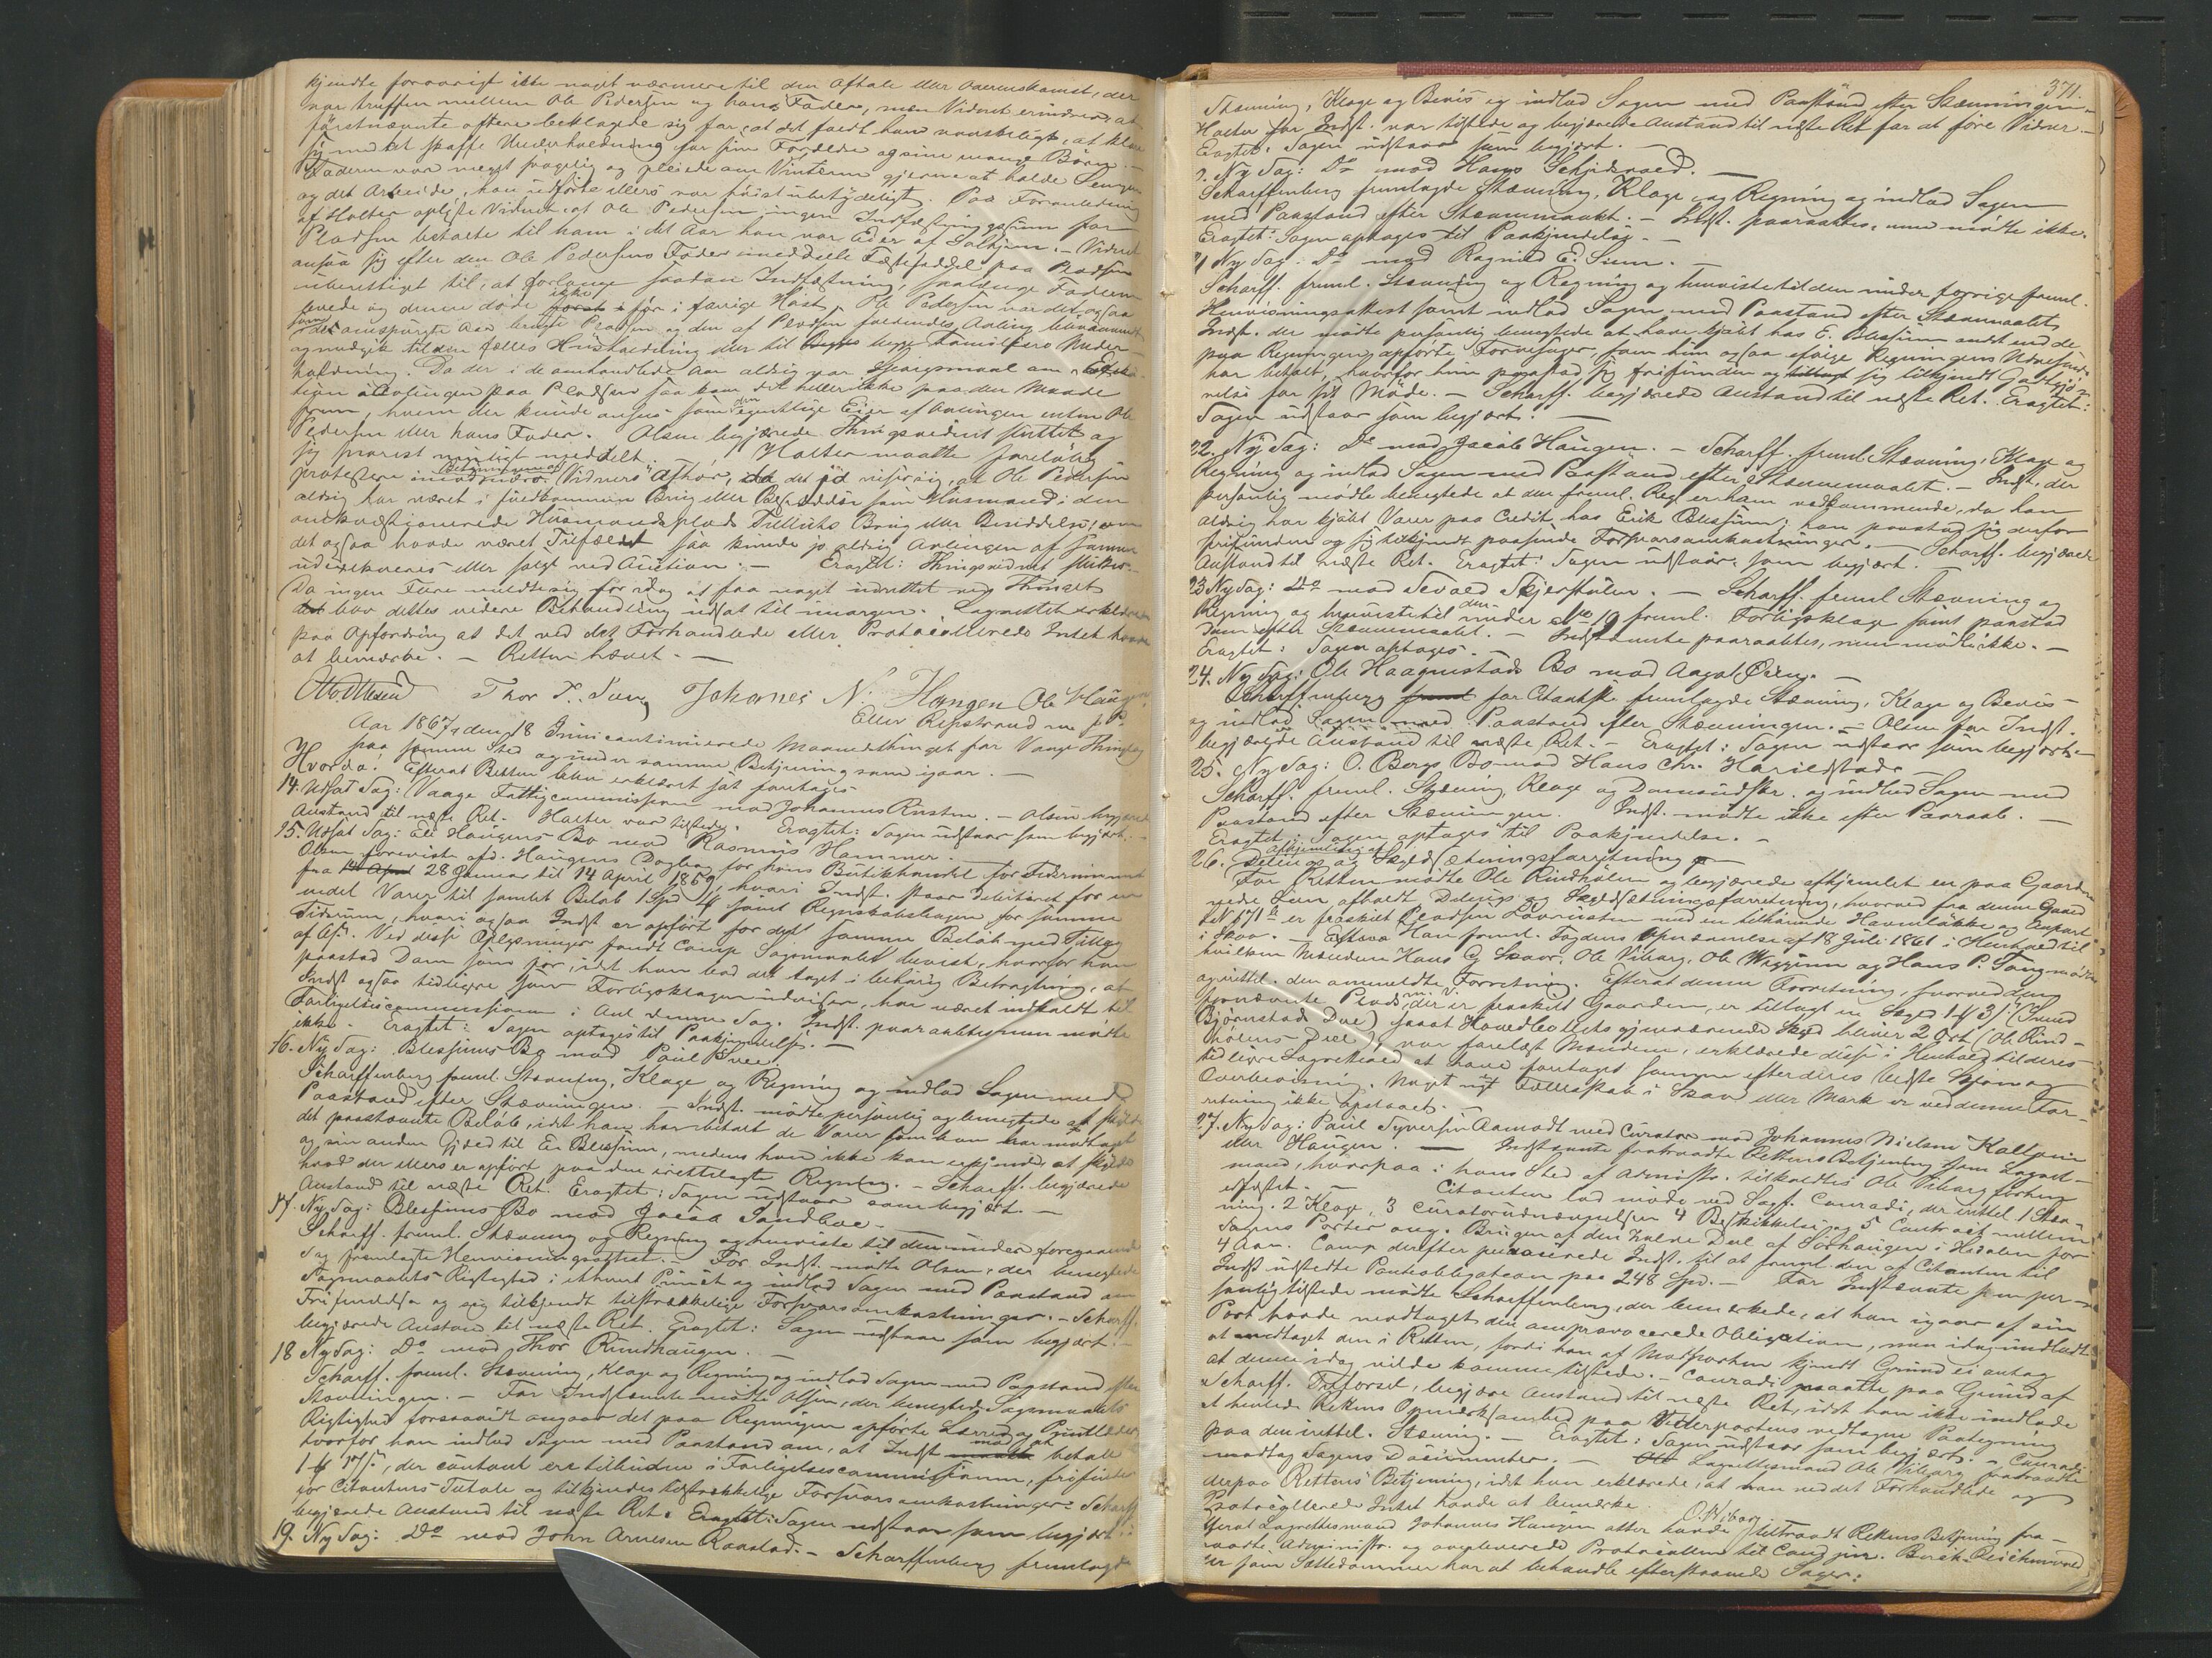 kjendte forøvrigt ikke noget nærmere til den Aftale eller Overenskomst, der
var truffen mellem Ole Pedersen og hans Fader, men Vidnet erindrer, at
førstnævnte oftere beklagede sig for, at det faldt ham vanskeligt, at klare
sig med at skaffe Underholdning for sine Forældre og sine mange Børn. —
Faderen var meget svagelig og pleiede om Vinteren gjerne at holde Sengen
og det Arbeide, han udførte ellers var høist ubetydeligt. Paa Foranledning
af Holter oplyste Vidnet, at Ole Pedersen ingen Indfæstningssum for
Pladsen betalte til ham i det Aar han var Eier af Solhjem. — Vidnet
ansaa sig efter den Ole Pedersens Fader meddelte Fæsteseddel paa Pladsen
uberettiget til, at forlange saadan Indfæstning, saalænge Faderen
levede og denne døde ikke før i forrige Høst. Ole Pedersen var det, ogsaa
som i de omspurgte Aar brugte Pladsen og den af Pladsen faldendes Avling
og medgik til den fælles Husholdning eller til begge Familiers Under-
holdning. Da der i de omhandlede Aar aldrig var Spørgsmaal om
tion i Avlingen paa Pladsen saa kom det heller ikke paa den Maade
frem, hvem der kunde ansees som den egentlige Eier af Avlingen enten Ole
Pedersen eller hans Fader. Olsen begjærede Thingsvidnet sluttet og
sig snarest muligt meddelt. Holter maatte foreløbig
protestere imod Vidners Afhør, da det jo viser sig, at Ole Pedersen
aldrig har været i fuldkommen Brug eller Besiddelse som Husmand i den
omkvæstionerede Husmandsplads Brug eller Besiddelse, om
det ogsaa havde været Tilfældet saa kunde jo aldrig Avlingen af samme
udexekveres eller sælges ved Auction. — Eragtet: Thingsvidnet sluttes. —
Da ingen Flere meldte sig for idag at faa noget udrettet ved Thinget
blev dettes videre Behandling udsat til imorgen. Lagrettet erklærede
paa Opfordring at det ved det Forhandlede eller Protocollerede Intet havde
at bemærke. — Retten hævet. —
Thor T. Sørng Johanes N: Hangen Ole
Aar 1867, den 18 Juni continuerede Maanedsthinget for Vaage Thinglag
paa samme Sted og under samme Betjening som igaar. —
Hvorda: Efterat Retten blev erklæret sat foretoges
14. Udsat Sag: Vaage Fattigcommission mod Johannes Rusten. — Olsen begjærede
Austand til næste Ret. Holter var tilstede. Eragtet: Sagen udstaar som begjært. —
15. Udsat Sag: Ole Haugens Bo mod Rasmus Hammer.
Olsen foreviste afd. Haugens Dagbog for hans Butikhandel for Tidsrummet
fra 28 Januar til 14 April 1859, hvori Indst. staar debiteret for en
Varer til samlet Beløb 1 Spd samt Regnskabsbogen for samme
Tidsrum, hvori ogsaa Indst er opført for det samme Beløb med Tillæg
af Ved disse Oplysninger fandt Comp. Sagsmaalet bevist, hvorfor han
paastod Dom som før, idet han bad det taget i behørig Betragtning, at
Indst ogsaa tidligere som Forligsklagen udviser, har været indkaldt til
Forligelsescommissionen i Anl. denne Sag. Indst. paaraabtes men mødte
ikke. Eragtet: Sagen optages til Paakjendelse. —
16. Ny Sag: Blessums Bo mod Paul Bræe.
Scharffenberg freml. Stævning, Klage og Regning og indlod Sagen med
Paastand efter Stævningen. — Indst. mødte personlig og benegtede at skylde
det paastævnte Beløb, idet han har betalt de Varer som han har modtaget
og sin anden Gjæld til E. Blessum, medens han ikke kan erkjende at skylde
hvad der ellers er opført paa den irettelagte Regning. — Scharff. begjærede
Austand til næste Ret. Eragtet: Sagen udstaar som begjært. —
17. Ny Sag: Blessums Bo mod Jacob Sandboe. —
Scharff. freml. Stævning og Regning og henviste til den under foregaaende
Sag fremlagte Henvisningsattest. — For Indst. mødte Olsen, der benegtede
Sagsmaalets Rigtighed i ethvert Punct og indlod Sagen med Paastand om
Frifindelse og sig tilkjendt tilstrækkelige Forsvarsomkostninger. — Scharff.
begjærede Austand til næste Ret. Eragtet: Sagen udstaar som begjært. —
18 Ny Sag: Do mod Thor Rundhaugen. —
Scharff. freml. Stævning, Klage og Regning og indlod Sagen med Paastand efter
Stævningen. — For Indstævnte mødte Olsen, der benegtede Sagsmaalets
Rigtighed forsaavidt angaar det paa Regningen opførte Lærred og
hvorfor han indlod Sagen med Paastand om, at Indst. mod at betale
der contant ere tilbudne i Forligelsescommissionen, frifindes
for Citantens Tiltale og tilkjendes tilstrækkelige Forsvarsomkostninger. Scharff
begjærede Austand til næste Ret. Eragtet: Sagen udstaar som begjært. —
19. Ny Sag: Do mod John Arnesen Raastad. — Scharffenberg fremlagde
371.
Stævning, Klage og Bevis og indlod Sagen med Paastand efter Stævningen. —
Holter for Indst. var tilstede og begjærede Austand til næste Ret for at føre Vidner. —
Eragtet: Sagen udstaar som begjært. —
Ny Sag: Do mod Hans Schjideroed. —
Scharffenberg fremlagde Stævning, Klage og Regning og indlod Sagen
med Paastand efter Stævnemaalet. — Indst. paaraabtes, men mødte ikke.
Eragtet: Sagen optages til Paakjendelse. —
21 Ny Sag: Do mod Ragnild E. Sum. —
Scharff. freml. Stævning og Regning og henviste til den under forrige freml.
Henvisningsattest samt indlod Sagen med Paastand efter Stævnemaalet.
Indst. der mødte personlig benegtede at have kjøbt hos E. Blessum andet end de
paa Regningen opførte som hun ogsaa ifølge Regningens Udvisende
har betalt, hvorfor hun paastod sig frifunden og sig tilkjendt Godtgjø-
relse for sit Møde. — Scharff. begjærede Austand til næste Ret. Eragtet:
Sagen udstaar som begjært. —
22. Ny Sag: Do mod Jacob Haugen. — Scharff. freml. Stævning, Klage og
Regning og indlod Sagen med Paastand efter Stævnemaalet. — Indst. der
personlig mødte benegtede at den freml. Reg. er ham vedkommende, da han
aldrig har kjøbt Varer paa Credit hos Erik Blessum; han paastod sig derfor
frifunden og sig tilkjendt passende Forsvarsomkostninger. — Scharff. begjærede
Austand til næste Ret. Eragtet: Sagen udstaar som begjært. —
23 Ny Sag: Do mod Sevald Skjerstulen. — Scharff. freml Stævning og
Regning og henviste til den under No 19 freml. Forligsklage samt paastod
Dom efter Stævnemaalet. — Indstævnte paaraabtes, men mødte ikke. —
Eragtet: Sagen optages. —
24. Ny Sag: Ole Haagenstads Bo mod Aagot Øien. —
Scharffenberg for Citantsk. fremlagde Stævning, Klage og Bevis —
og indlod Sagen med Paastand efter Stævningen. — Olsen for Indst.
begjærede Austand til næste Ret. — Eragtet: Sagen udstaar som begjært. —
25. Ny Sag: O. Bergs Bo mod Hans Chr. Harildstad. —
Scharff. freml. Stævning, Klage og Domsudskr. og indlod Sagen med
Paastand efter Stævningen. Indst. mødte ikke efter Paaraab. —
Eragtet: Sagen optages til Paakjendelse. —
26. Afhjemling af Delings og Skyldsætningsforretning
For Retten mødte Ole Rindhølen og begjærede afhjemlet en paa Gaarden
nedre Sem afholdt Delings og Skyldsætningsforretning, hvorved fra denne Gaard
er fraskilt Pladsen Løvensten med en tilhørende Havneløkke og Anpart
i Skov. — Citanten freml. Fogdens Opnævnelse af 18 Juli 1861 i Henhold til
hvilken Mændene Hans G. Skaar, Ole Viborg, Ole Wiggum og Hans P. Tangmødte
og irettel. den anmeldte Forretning. Efterat denne Forretning, hvorved den
fornævnte Plads m. v. der er fraskilt Gaarden, er tillagt en Skyld (Knud
Bjørnstads Deel) saaat Hovedbølets gjenværende Skyld bliver 2 Ort (Ole Rind-
hølens Deel), var forelæst Mændene, erklærede disse i Henhold til deres
tidligere Lagretteed at have foretaget samme efter deres bedste Skjøn og
Overbevisning. Noget nyt Fællesskab i Skov eller Mark er ved denne For-
retning ikke opstaaet. —
27. Ny Sag: Paul Syversen Aamodt med Curator mod Johannes Nielsen Kalfoin
eller Haugen. — Indstævnte fratraadte Rettens Betjening som Lagret-
mand, hvorpaa i hans Sted af Administr. tilkaldtes Ole Viborg forhen
edfæstet. — Citanten lod møde ved Sagf. Conradi, der irettel. 1 Stæv-
ning. 2 Klage, 3 Curatorudnævnelsen 4 Beskikkelse og 5 Contract mellem
Sagens Parter ang. Brugen af den halve Deel af Sørhaugen i Hedalen for
4 Aar. Comp. derefter provocerede Indst. til at freml. den af Citanten til
Indst udstedte Panteobligation paa 248 Spd. — For Indstævnte som per-
sonlig tilstede mødte Scharffenberg, der bemærkede, at han igaar af sin
Part havde modtaget den omprovocerede Obligation, men idag undladt
at medtaget den i Retten, fordi han af Modparten kjendt Grund ei antog
at denne idag vilde komme tilstede. — Conradi maatte paa Grund af
Scharff. Tilførsel, begjære Austand til næste Ret, idet han ikke undlod
at henlede Rettens Opmærksomhed paa Vederpartens vedtagne Paategning
paa den irettel. Stævning. — Eragtet: Sagen udstaar som begjært. — Conradi
modtog Sagens Documenter. — Lagrettesmand Ole Viborg fratraadte
derpaa Rettens Betjening, idet han erklærede, at han ved det Forhandlede og
Protocollerede Intet havde at bemærke. O. Wiborg
Efterat Lagrettesmand Johannes Haugen atter havde tiltraadt Rettens Betjening fra-
traadte Administr. og overleverede Protocollen til Cand. jur.
der som Sættedommer har at behandle efterstaaende Sager: